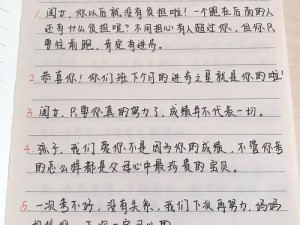 1. 闺女，你以后就没有负担啦！一个跟在后面的人
还有什么负担呢？不用担心有人超过你，但你只
要往前跑，肯定有进步。
2. 恭喜你！你们班下个月的进步之星就是你的啦！
3. 闺女，只要你真的努力了，成绩并不代表一切。
4. 孩子，我们爱你不是因为你的成绩，不管你考
的怎么样都是父母心中最珍贵的宝贝。
5. 一次考不好，没有关系，我们下次再努力，妈妈